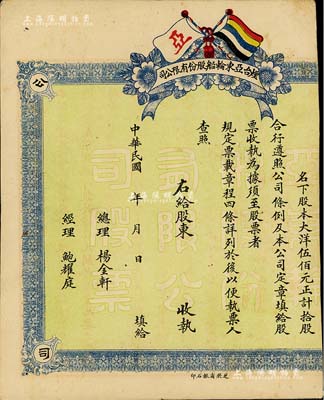 亞
烟台亞東輪船股份有限公司
公
名下股本大洋伍佰元正計拾股
合行遵照公司條例及本公司定章填給股
票收執為據須至股票者
規定票載章程四條詳列於後以便執票人
查照
右給股東 收執
中華民國 年 月 日 填給
總理 楊金軒
經理 鮑耀庭
司